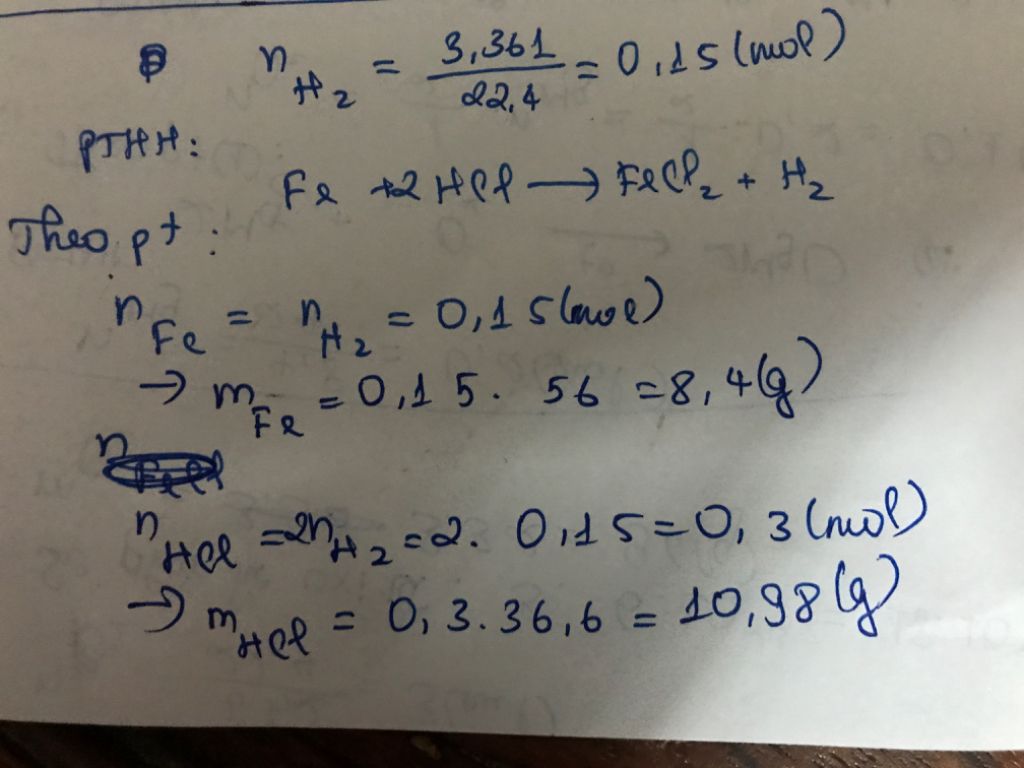 n H₂ = 3,361 / 22,4 = 0,15 (mol)
PTHH:
Fe + 2HCl → FeCl₂ + H₂
Theo pt:
n Fe = n H₂ = 0,15 (mol)
→ m Fe = 0,15 . 56 = 8,4 (g)
n
n HCl = 2n H₂ = 2. 0,15 = 0,3 (mol)
→ m HCl = 0,3. 36,6 = 10,98 (g)